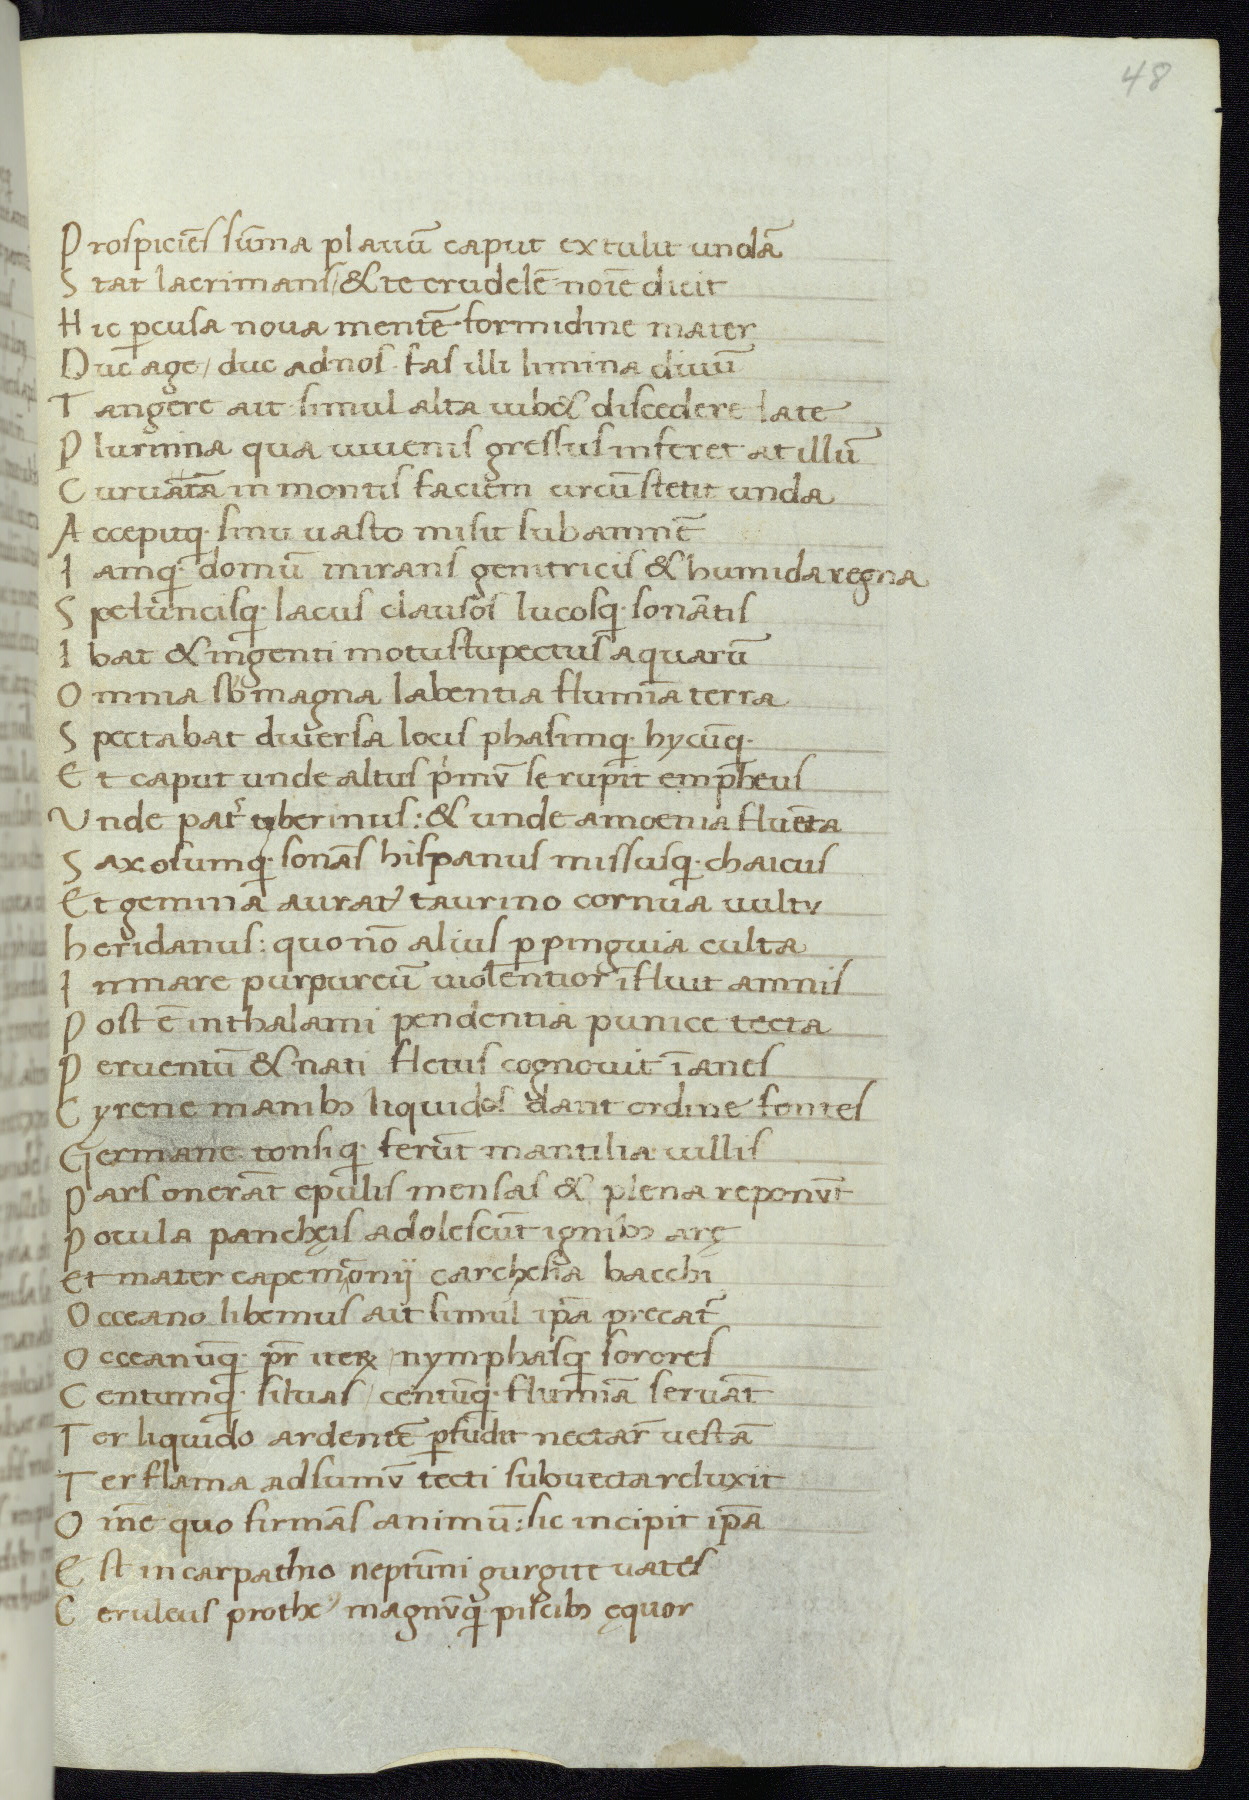 48
Prospiciēs sūma plauū caput extulit undā
Stat lacrimans / & te crudelē noīe dicit
Hic ꝑcusa noua mentē formidine mater
Duc age / duc ad nos fas illi limina diuū
Tangere ait simul alta iub& discedere late
Flumina qua iuuenis gressus inferet at illū
Curuatā in montis faciem circūstetit unda
Accepitq· sinu uasto misit sub amnē
Iamq· domū mirans genitricis & humida regna
Speluncisq· lacus clausos lucosq· sonātis
Ibat & ingenti motu stupectus aquarū
Omnia sb magna labentia flumīa terra
Spectabat diuersa locis phasimq· hycūq·
Et caput unde altus pimū se rupit empheus
Unde pat tyberinus: & unde amoenia fluēta
Saxosumq· sonās hispanus missusq· chaicus
Et gemina aurat taurino cornua uultu
heridanus: quo nō alius ꝑ pinguia culta
In mare purpureū uiolentior īfluit amnis
Post ē in thalami pendentia punice tecta
Peruentū & nati fletus cognouit īanes
Cyrene manibꝫ liquidos dant ordine fontes
Germane tonsiq· ferūt mantilia uillis
Pars onerāt epulis mensas & plena reponūt
Pocula panchęis adolescūt ignibꝫ arę
Et mater cape meonij carchesia bacchi
Occeano libemus ait simul ip̄a precat
Occeanūq· pr̄ rerꝝ / nymphasq· sorores
Centumq· siluas / centūq· flumīa seruāt
Ter liquido ardentē ꝑfudit nectar uestā
Ter flama ad sumū tecti subuecta reluxit
Om̄e quo firmās animū: sic incipit ip̄a
Est in carpathio neptūni gurgite uates
Ceruleus prothe magnūq· piscibꝫ ęquor